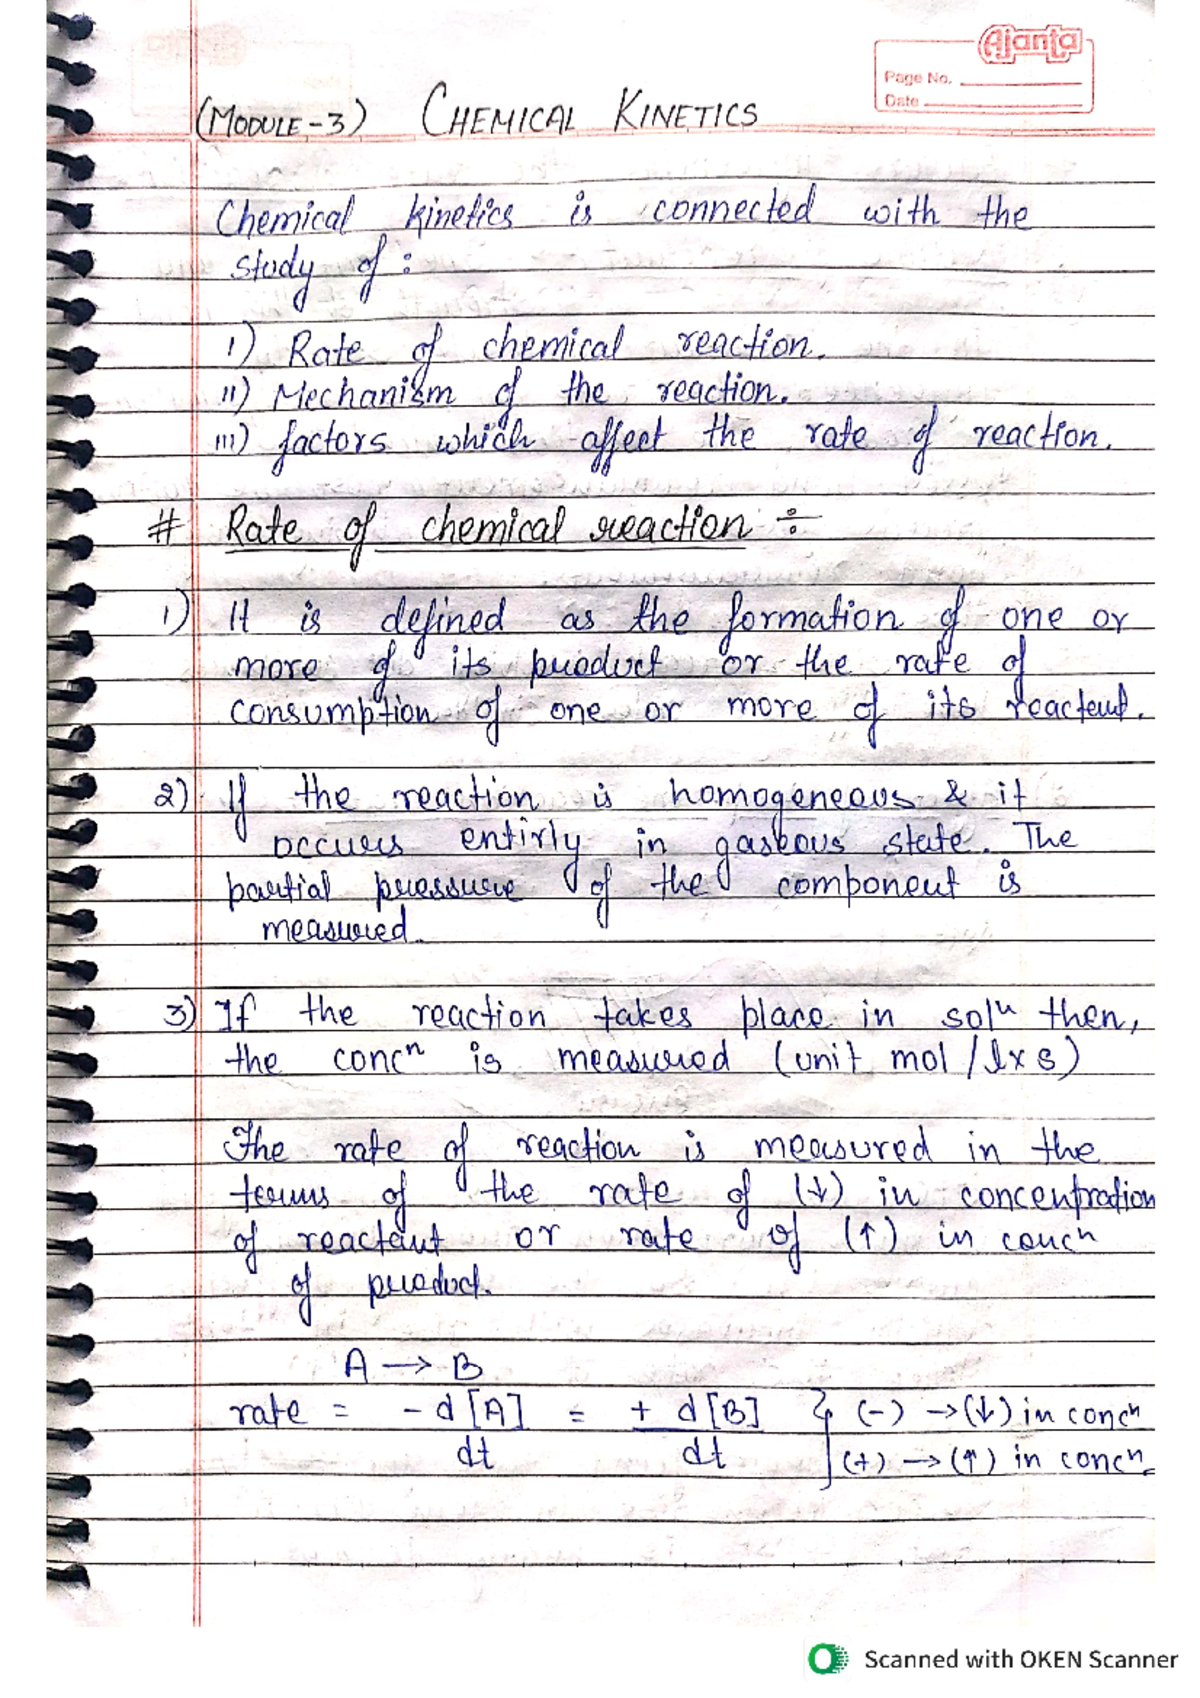 Ajanta
Page No.
Date
(MODULE-3) CHEMICAL KINETICS
Chemical kinetics is connected with the
study of :
I) Rate of chemical reaction.
II) Mechanism of the reaction.
III) factors which affect the rate of reaction.
# Rate of chemical reaction ÷
1) It is defined as the formation of one or
more of its product or the rate of
consumption of one or more of its reactent.
2) If the reaction is homogeneous & it
occurs entirly in gaseous state. The
partial pressure of the component is
measured.
3) If the reaction takes place in solⁿ then,
the concⁿ is measured (unit mol / l x s)
The rate of reaction is measured in the
terms of the rate of (↓) in concentration
of reactant or rate of (↑) in concⁿ
of product.
A → B
rate = - d [A] = + d [B] } (-) → (↓) in concⁿ
dt dt (+) → (↑) in concⁿ.
Scanned with OKEN Scanner